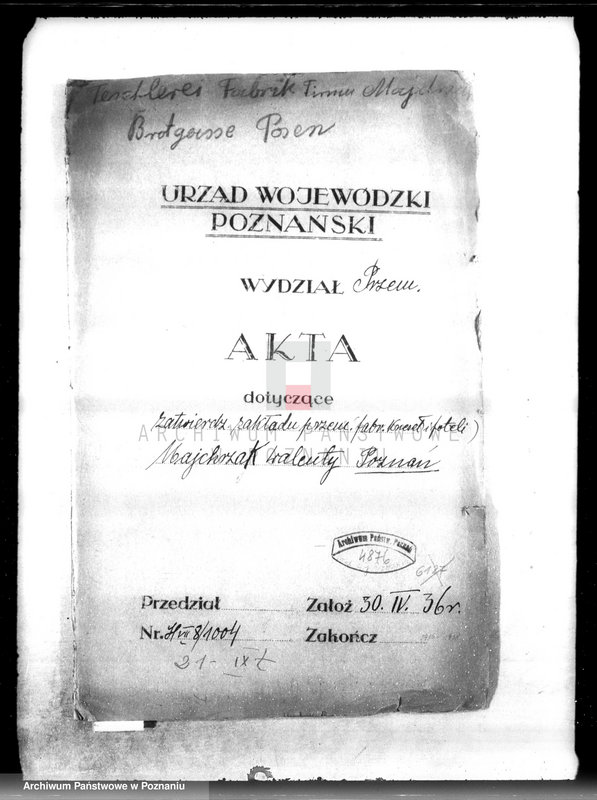 Teschlerei Fabrik Firma
Brotgasse Posen
URZĄD WOJEWÓDZKI
POZNAŃSKI
WYDZIAŁ Przem.
AKTA
dotyczące
zatwierdz. zakładu przem. (fabr. krzeseł i foteli)
ARCHIWUM PAŃSTWOWE
Majchrzak Walenty Poznań
Archiwum Państw. Poznań
4876
6187
Przedział Założ 30. IV. 36 r.
Nr. 8/1004 Zakończ
21-IX
Archiwum Państwowe w Poznaniu